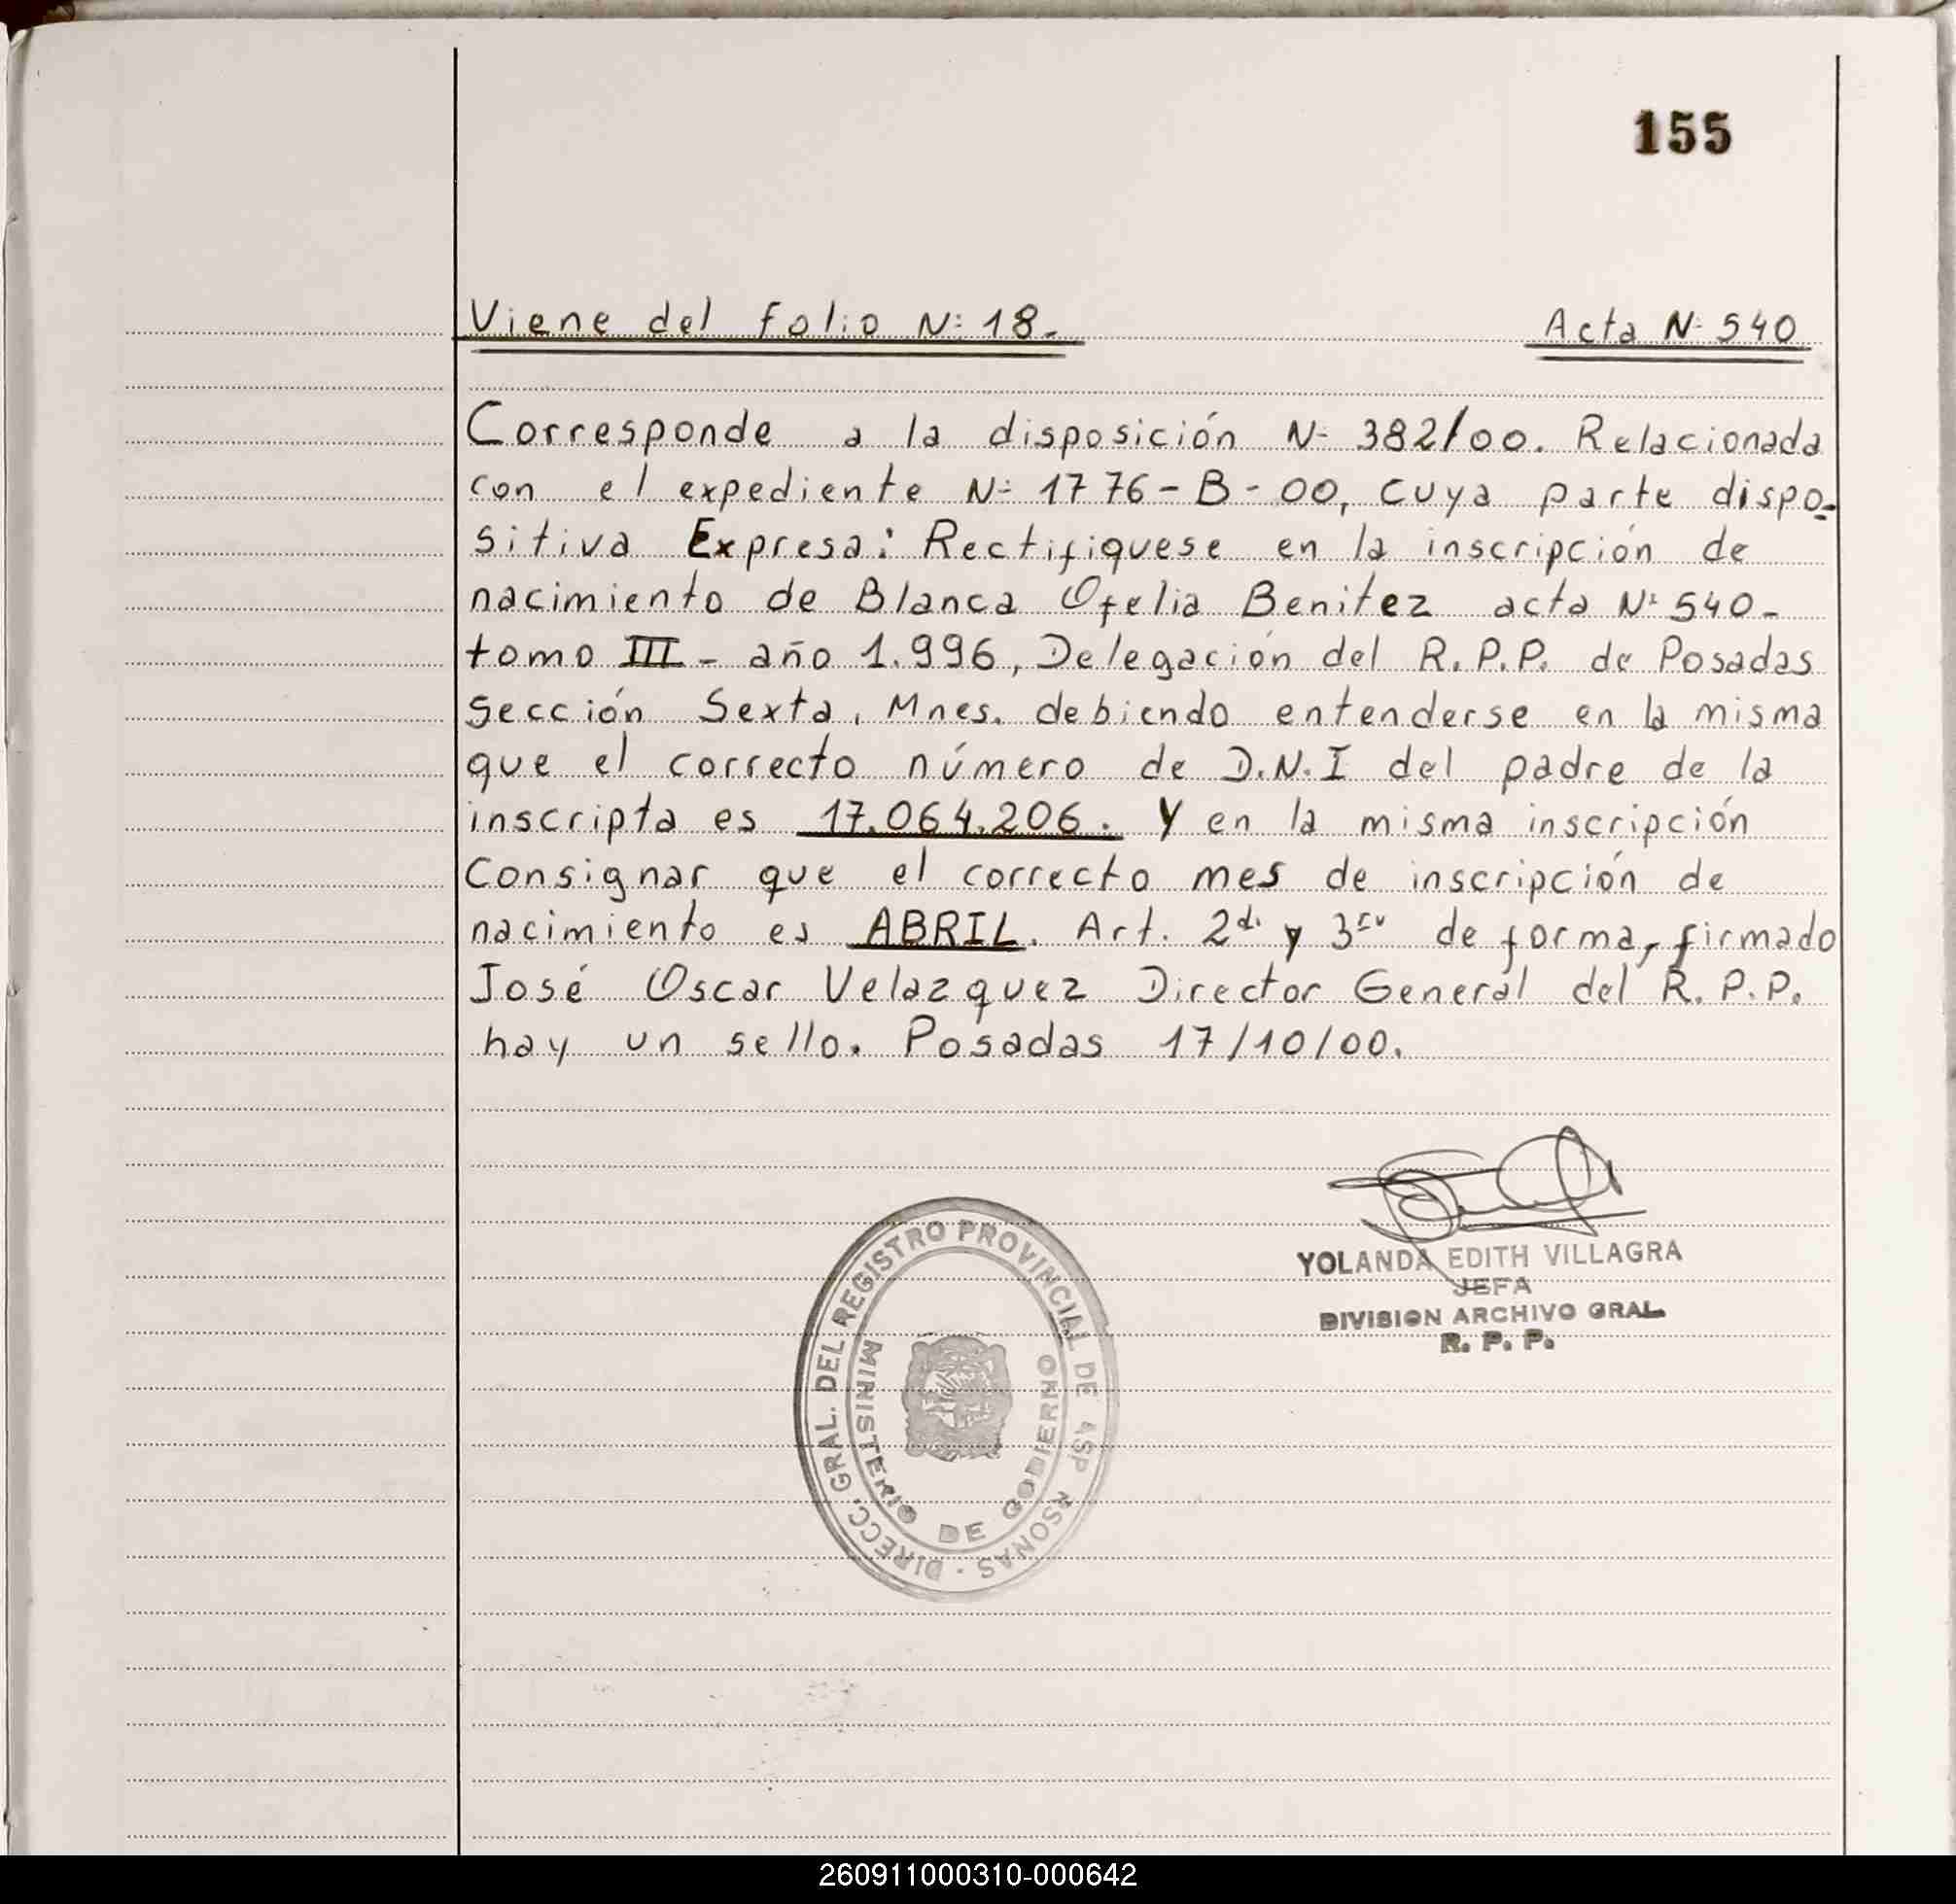 155
Viene del folio N: 18.          Acta N: 540
Corresponde a la disposición N= 382/00. Relacionada
con el expediente N= 1776-B-00, cuya parte dispo-
sitiva Expresa: Rectifiquese en la inscripción de
nacimiento de Blanca Ofelia Benitez acta N: 540-
tomo III - año 1.996, Delegación del R.P.P. de Posadas
Sección Sexta, Mnes. debiendo entenderse en la misma
que el correcto número de D.N.I del padre de la
inscripta es 17.064.206. y en la misma inscripción
Consignar que el correcto mes de inscripción de
nacimiento es ABRIL. Art. 2do y 3ro de forma, firmado
José Oscar Velazquez Director General del R.P.P.
hay un sello. Posadas 17/10/00.
YOLANDA EDITH VILLAGRA
JEFA
DIVISION ARCHIVO GRAL.
R. P. P.
DIRECC. GRAL. DEL REGISTRO PROVINCIAL DE LAS PERSONAS -
MINISTERIO DE GOBIERNO
260911000310-000642